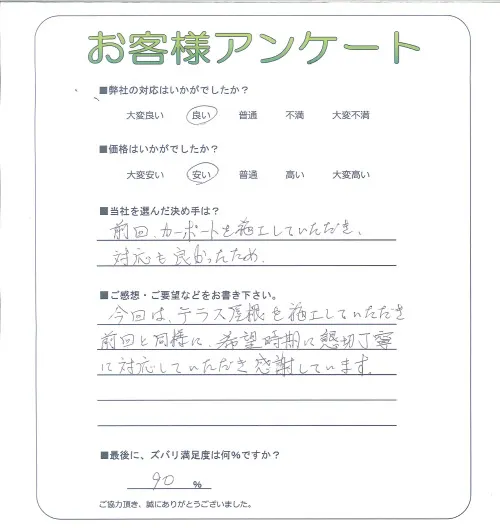 お客様アンケート
■弊社の対応はいかがでしたか？
大変良い 良い 普通 不満 大変不満
■価格はいかがでしたか？
大変安い 安い 普通 高い 大変高い
■当社を選んだ決め手は？
前回、カーポートを施工していただき、
対応も良かったため.
■ご感想・ご要望などをお書き下さい。
今回は、テラス屋根を施工していただき
前回と同様に、希望時期に懇切丁寧
に対応していただき感謝しています。
■最後に、ズバリ満足度は何%ですか？
90 %
ご協力頂き、誠にありがとうございました。